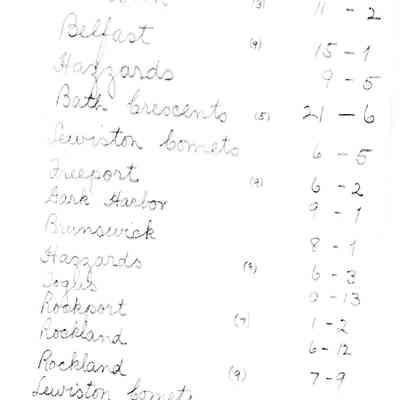 (3) 11 - 2
Belfast (9) 15 - 1
Hazzards 9 - 5
Bath Crescents (5) 21 - 6
Lewiston Comets 6 - 5
Freeport (9) 6 - 2
Dark Harbor 9 - 1
Brunswick 8 - 1
Hazzards (9) 6 - 3
Togus 0 - 13
Rockport (7) 1 - 2
Rockland 6 - 12
Rockland (9) 7 - 9
Lewiston Comets